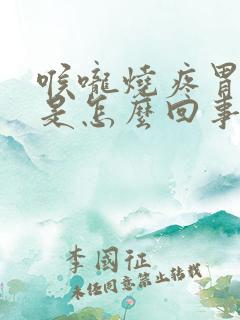 喉嚨燒疼胃
是怎麼回事
李國征
未任同意禁止转载